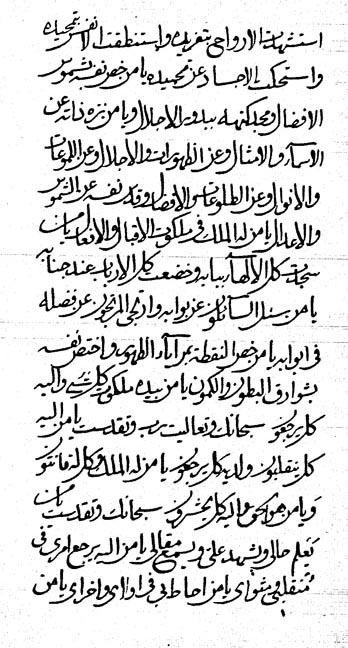 استشهدت الارواح بتفريده واستنطقت الانفس بتمجيده
واستحكت الاجساد عن تحميده يا من خص نفسه بشموس
الافضال ومجد كنهه ببدور الاجلال ويا من نزه ذاته عن
الاسماء والامثال وعن الظهورات والاجلال وعن اللموعات
والانوال وعن الطلوعات والافضال وقدس نفسه عن الشموس
والاعدال يا من له الملك في ملكوت الاقبال والافعال يا من
سجدت كل الالهة ببابه وخضعت كل الارباب عند جنابه
يا من يسئل السائلون عن ثوابه وارتجى المرتجون عن فضله
في ابوابه يا من خص النقطة بمرآياء الظهور واختص نفسه
بشوارق البطون والكمون يا من بيده ملكوت كل شئ واليه
كل يرجعون سبحانك وتعاليت يا رب وتقدست يا من اليه
كل ينقلبون واليه كل يرجعون يا من له الملك وكل له قانتون
ويا من هو الحق واليه كل يحشرون سبحانك وتقدست يا من
يعلم حالي ويشهد علي ويسمع مقالي يا من اليه يرجع امري في
منقلبي ومثواي يا من احاط بي في اولاي واخراي يا من